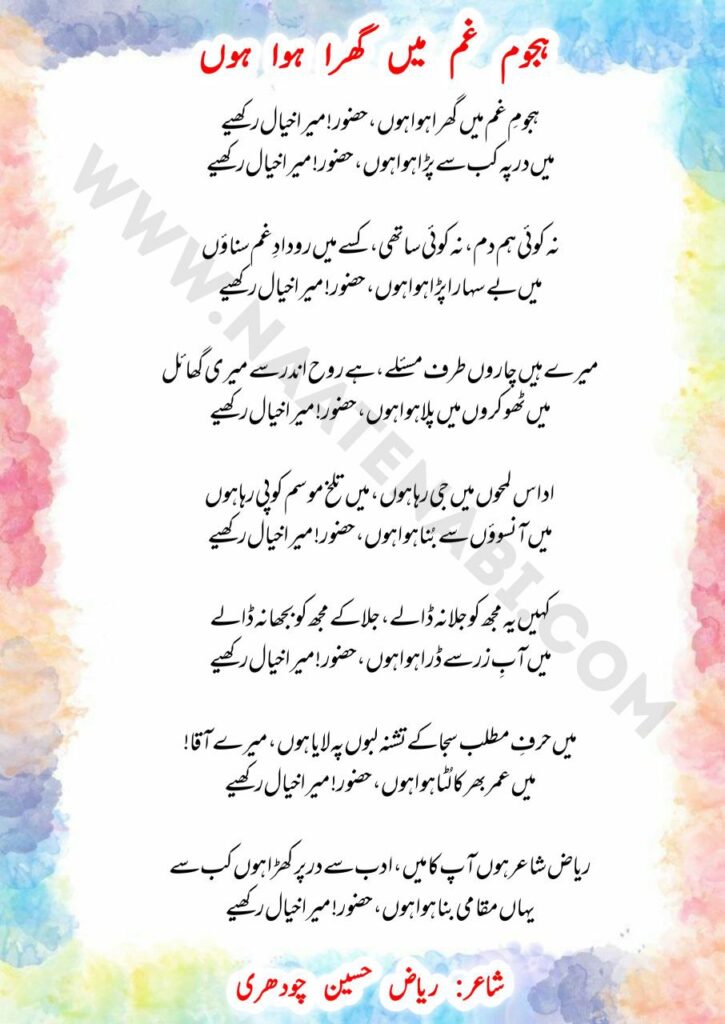 ہجوم غم میں گھرا ہوا ہوں
ہجومِ غم میں گھرا ہوا ہوں، حضور! میرا خیال رکھیے
میں در پہ کب سے پڑا ہوا ہوں، حضور! میرا خیال رکھیے
نہ کوئی ہم دم، نہ کوئی ساتھی، کسے میں رودادِ غم سناؤں
میں بے سہارا پڑا ہوا ہوں، حضور! میرا خیال رکھیے
میرے ہیں چاروں طرف مسئلے، ہے روح اندر سے میری گھائل
میں ٹھوکروں میں پلا ہوا ہوں، حضور! میرا خیال رکھیے
اداس لمحوں میں جی رہا ہوں، میں تلخ موسم کو پی رہا ہوں
میں آنسوؤں سے بُنا ہوا ہوں، حضور! میرا خیال رکھیے
کہیں یہ مجھ کو جلا نہ ڈالے، جلا کے مجھ کو بجھا نہ ڈالے
میں آبِ زر سے ڈرا ہوا ہوں، حضور! میرا خیال رکھیے
میں حرفِ مطلب سجا کے تشنہ لبوں پہ لایا ہوں، میرے آقا!
میں عمر بھر کا لُٹا ہوا ہوں، حضور! میرا خیال رکھیے
ریاض شاعر ہوں آپ کا میں، ادب سے در پر کھڑا ہوں کب سے
یہاں مقامی بنا ہوا ہوں، حضور! میرا خیال رکھیے
شاعر: ریاض حسین چودھری
WWW.NAATENABI.COM